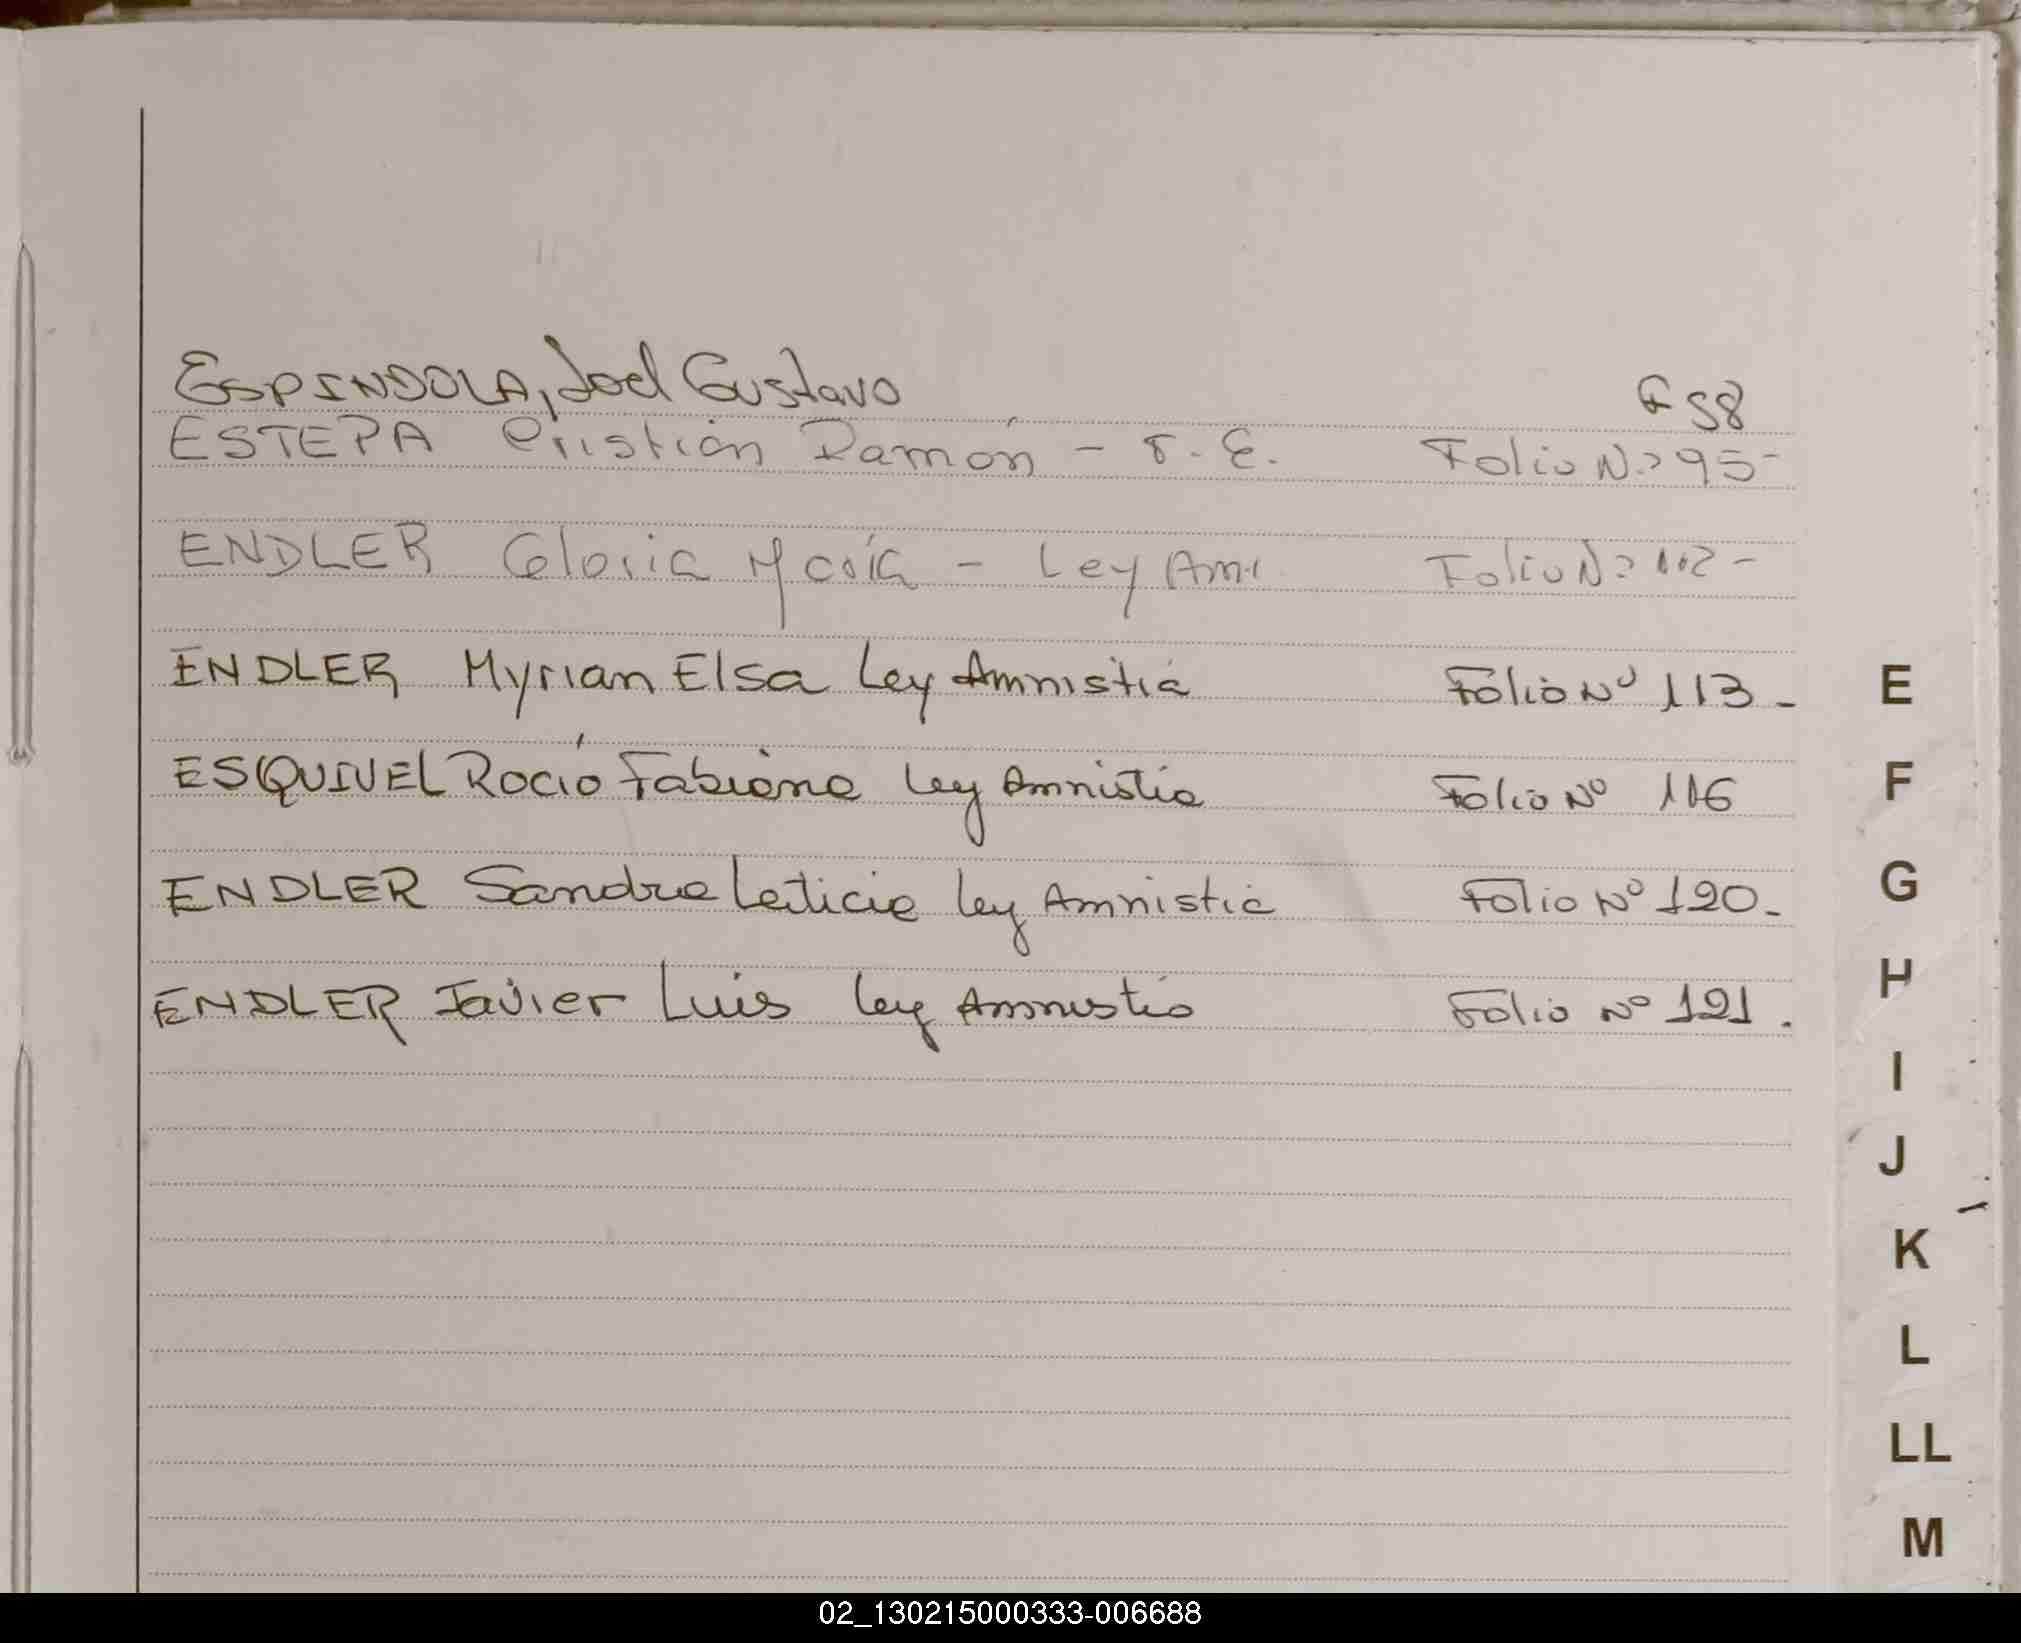 ESPINDOLA, Joel Gustavo F 58
ESTEPA Cristián Ramón - F. E. Folio Nº 95-
ENDLER Gloria María - Ley Ami Folio Nº 112-
ENDLER Myrian Elsa Ley Amnistia Folio Nº 113-
ESQUIVEL Rocío Fabiana Ley Amnistia Folio Nº 116
ENDLER Sandra Leticia Ley Amnistia Folio Nº 120-
ENDLER Javier Luis Ley Amnistia Folio Nº 121.
E
F
G
H
I
J
K
L
LL
M
02_130215000333-006688